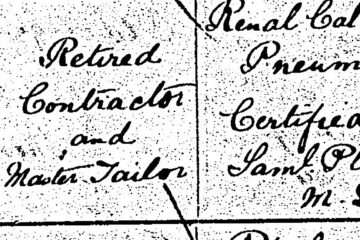 Retired
Contractor
and
Master Tailor
Renal Cal
Pneum
Certified
Saml Pl
M.